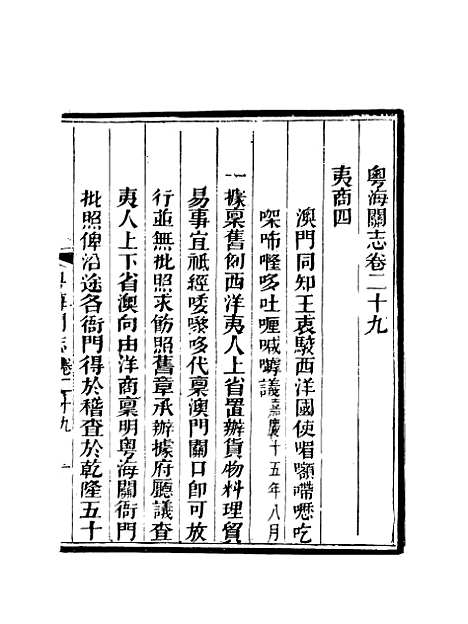 粵海關志卷二十九
夷商四
澳門同知王衷駮西洋國使喟嚬嗗㗭吃
㗎咘㗭哆吐喱喊㘔議嘉慶十五年八月
一據稟舊例西洋夷人上省置辦貨物料理貿
易事宜祗經唩嚟哆代稟澳門關口卽可放
行並無批照求飭照舊章承辦據府廳議查
夷人上下省澳向由洋商稟明粵海關衙門
批照俾沿途各衙門得於稽查於乾隆五十
粵海關志 卷二十九 一